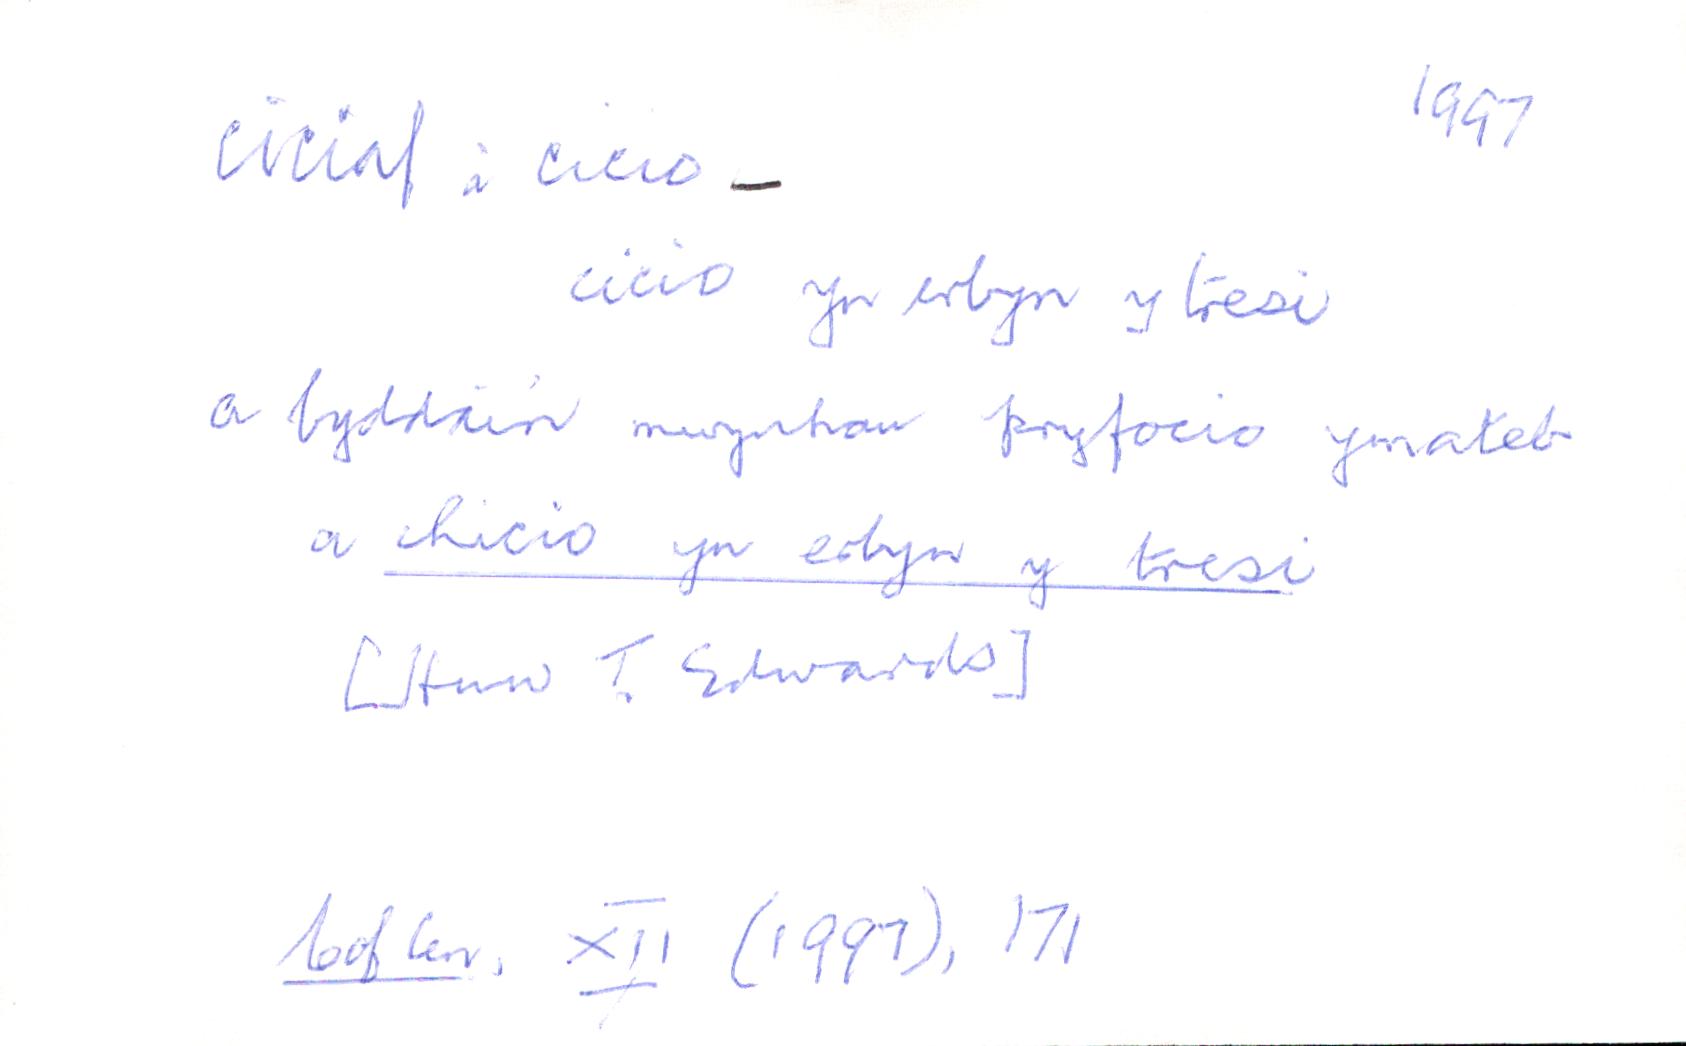 1997
ciciaf : cicio –
cicio yn erbyn y tresi
a byddai'n mwynhau pryfocio ymateb
a chicio yn erbyn y tresi
[Huw T. Edwards]
Cof Cen, XII (1997), 171